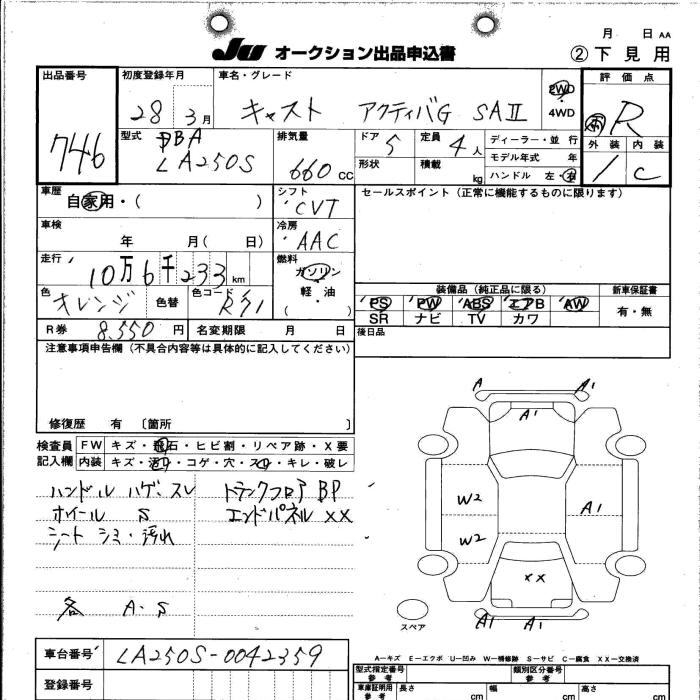 月 日 AA
JU オークション出品申込書 ②下見用
出品番号 初度登録年月 車名・グレード 2WD 評価点
28 3月 キャスト アクティバG SAⅡ 4WD R
746 型式 DBA 排気量 ドア 5 定員 4人 ディーラー・並行 外装 内装
LA250S 660cc 形状 積載 kg モデル年式 年 1 C
ハンドル 左・右
車歴 自家用・( ) シフト CVT セールスポイント(正常に機能するものに限ります)
車検 年 月( 日) 冷房 AAC
走行 10万6千233km 燃料 ガソリン
軽・油
( )
色 オレンジ 色替 色コード 装備品(純正品に限る) 新車保証書
PS PW ABS エアB AW 有・無
SR ナビ TV カワ
R券 8,550円 名変期限 月 日 後日品
注意事項申告欄(不具合内容等は具体的に記入してください)
修復歴 有 〔箇所 〕
検査員 FW キズ・飛石・ヒビ割・リペア跡・X要
記入欄 内装 キズ・汚レ・コゲ・穴・スレ・キレ・破レ
ハンドル ハゲ、スレ トランクフロア BP
ホイール S エンドパネル XX
シート シミ・汚れ
各 A・S
A A1
A1
W2 A1
W2
XX
A1 A1
スペア
A-キズ E-エクボ U-凹み W-補修跡 S-サビ C-腐食 XX-交換済
車台番号 LA250S-0042359
登録番号
型式指定番号 参考 類別区分番号 参考
車庫証明用 参考 長さ cm 幅 cm 高さ cm